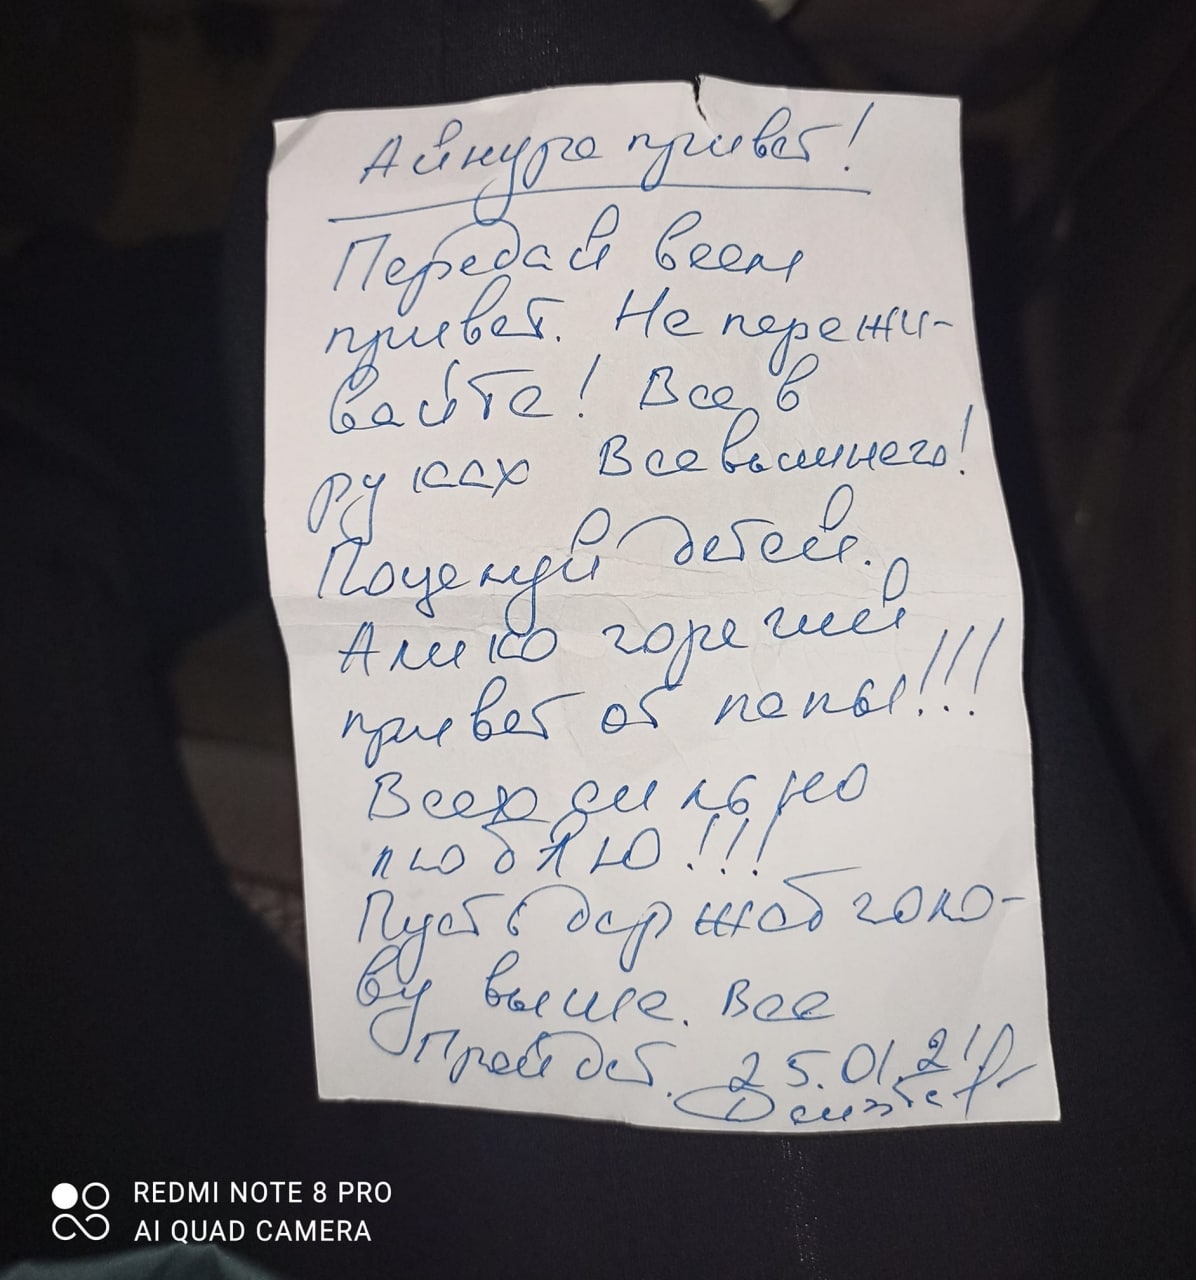 Айнура привет!
Передай всем
привет. Не пережи-
вайте! Все в
руках Всевышнего!
Поцелуй детей.
Алико горячий
привет от папы!!!
Всех сильно
люблю!!!
Пусть держат голо-
ву выше. Все
Пройдет. 25.01.21г
REDMI NOTE 8 PRO
AI QUAD CAMERA